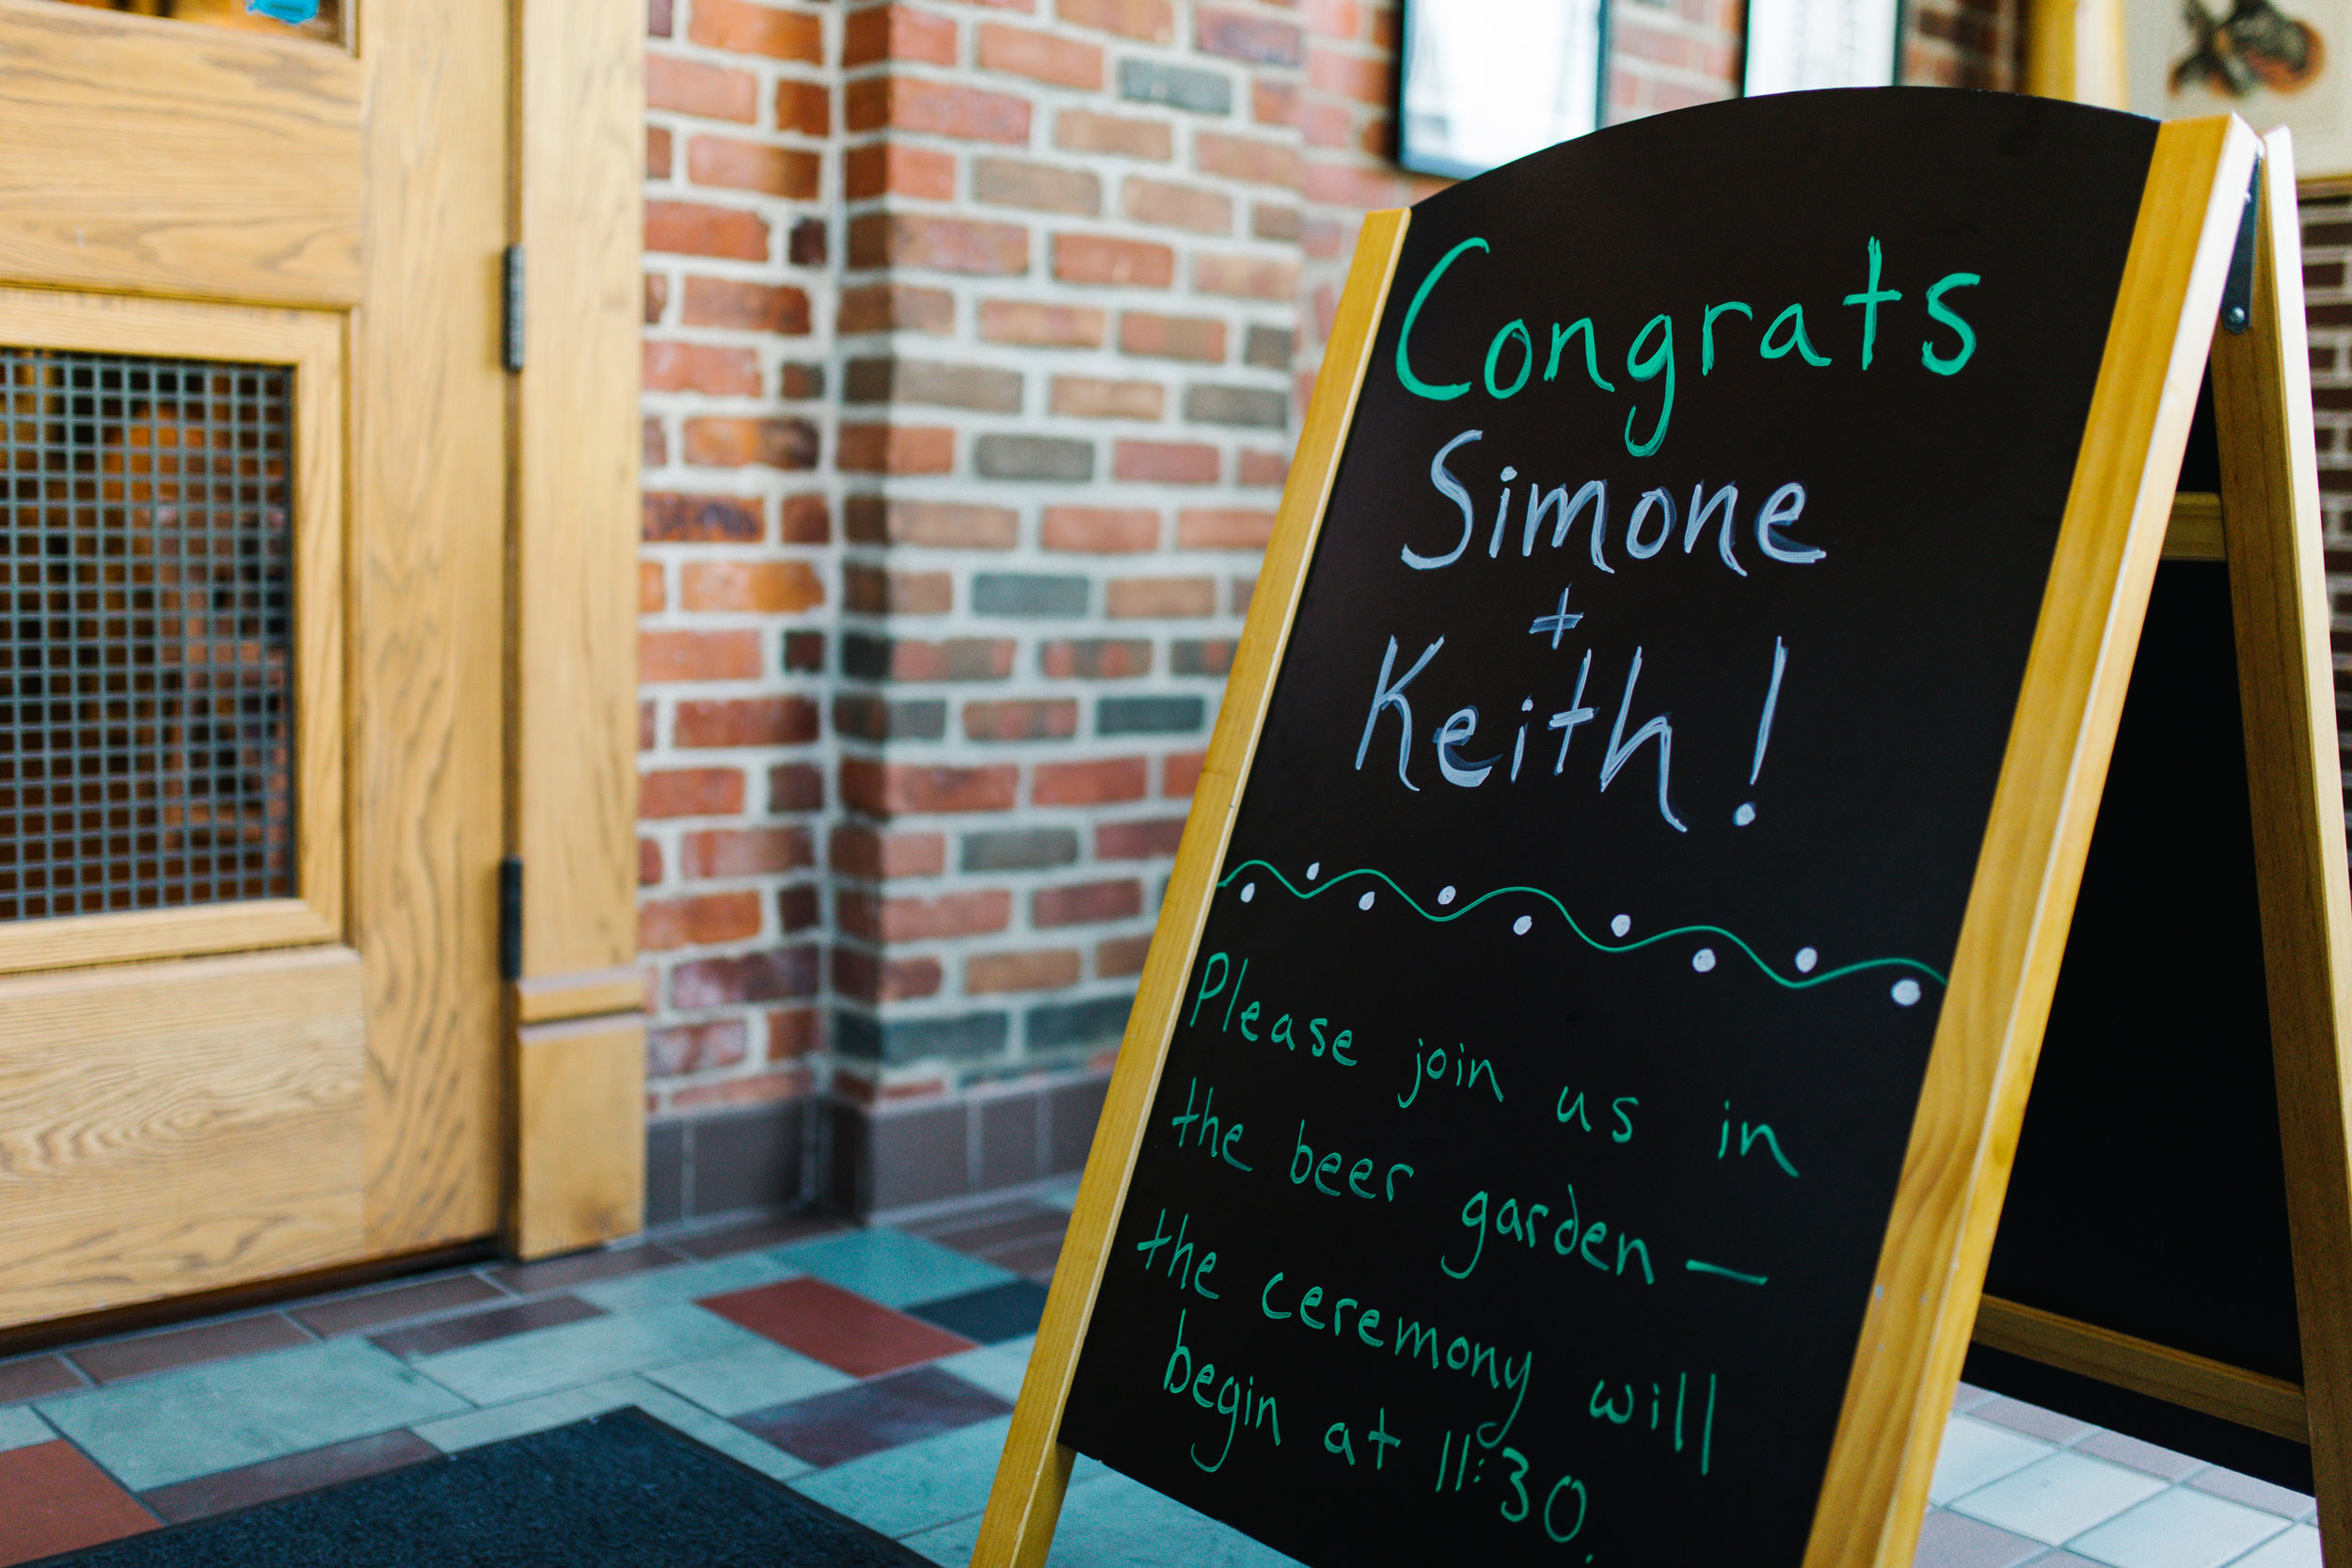 Congrats
Simone
+
Keith!
Please join us in
the beer garden—
the ceremony will
begin at 11:30.